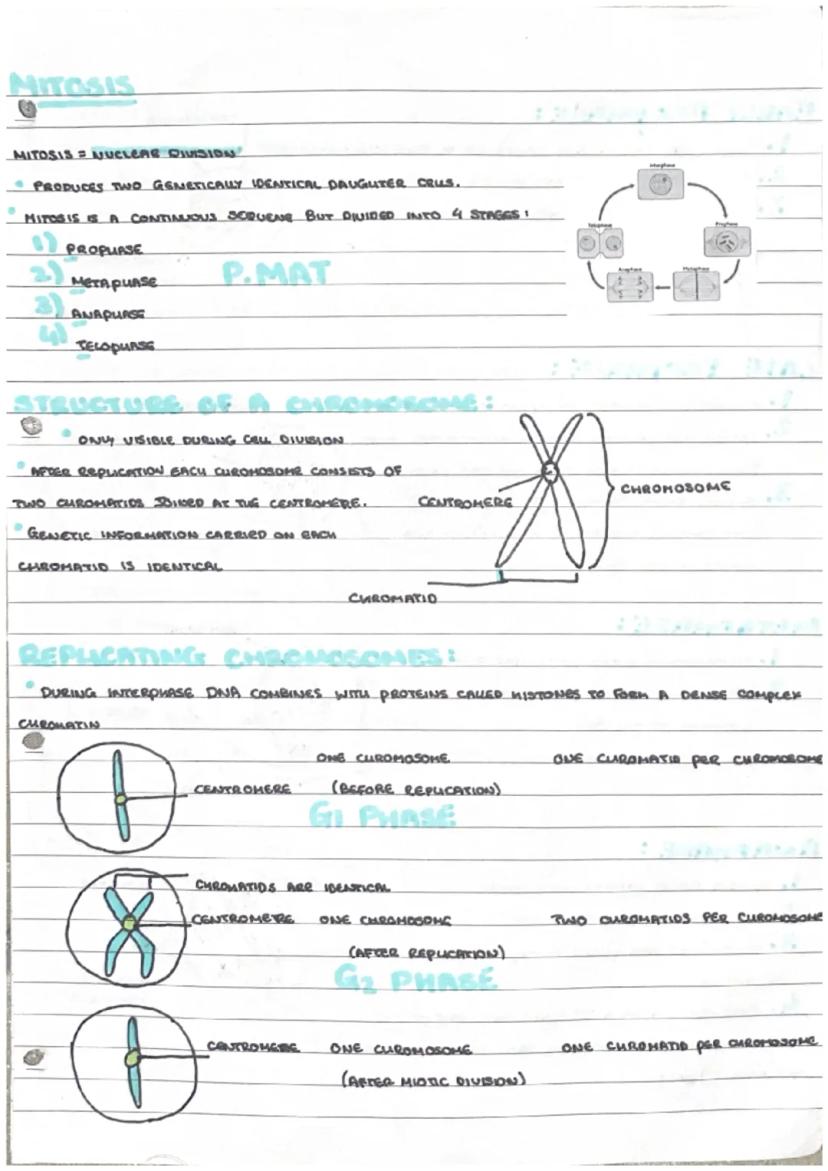 MITOSIS
MITOSIS = NUCLEAR DIVISION
• PRODUCES TWO GENETICALLY IDENTICAL DAUGHTER CELLS.
• MITOSIS IS A CONTINUOUS SEQUENE BUT DIVIDED INTO 4 STAGES:
1) PROPHASE
2) METAPHASE P.MAT
3) ANAPHASE
4) TELOPHASE
Interphase
Prophase
Metaphase
Anaphase
Telophase
STRUCTURE OF A CHROMOSOME:
• ONLY VISIBLE DURING CELL DIVISION
• AFTER REPLICATION EACH CHROMOSOME CONSISTS OF
TWO CHROMATIDS JOINED AT THE CENTROMERE.
• GENETIC INFORMATION CARRIED ON EACH
CHROMATID IS IDENTICAL
CENTROMERE
CHROMOSOME
CHROMATID
REPLICATING CHROMOSOMES:
• DURING INTERPHASE DNA COMBINES WITH PROTEINS CALLED HISTONES TO FORM A DENSE COMPLEX
CHROMATIN
ONE CHROMOSOME ONE CHROMATID PER CHROMOSOME
CENTROMERE (BEFORE REPLICATION)
G1 PHASE
CHROMATIDS ARE IDENTICAL
CENTROMETRE ONE CHROMOSOME TWO CHROMATIDS PER CHROMOSOME
(AFTER REPLICATION)
G2 PHASE
CENTROMERE ONE CHROMOSOME ONE CHROMATID PER CHROMOSOME
(AFTER MIOTIC DIVISION)